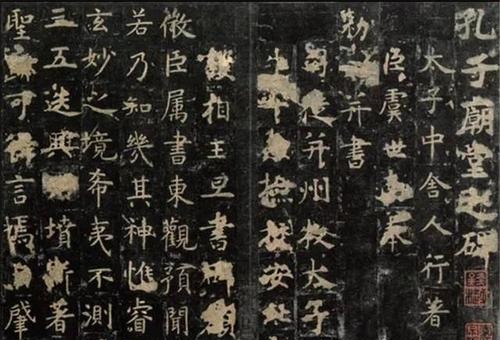 孔子廟堂之碑
太子中舍人行著
臣虞世奉
勑并書
司徒并州牧太子
牛校安北
護相王旦書碑額
微臣属書東觀預聞
若乃知幾其神惟睿
玄妙之境希夷不測
三五迭興墳斯著
聖可得言焉肇